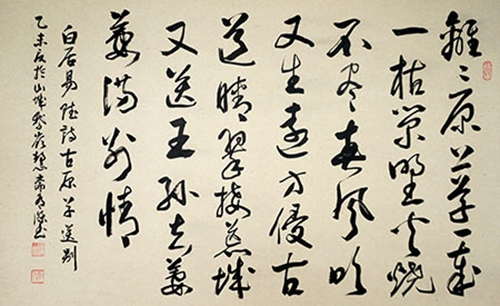 離〻原上草一歲
一枯榮野火燒
不盡春風吹
又生遠方侵古
道晴翠接荒城
又送王孫去萋
萋滿別情
白居易詩古原草送別
乙未於山城